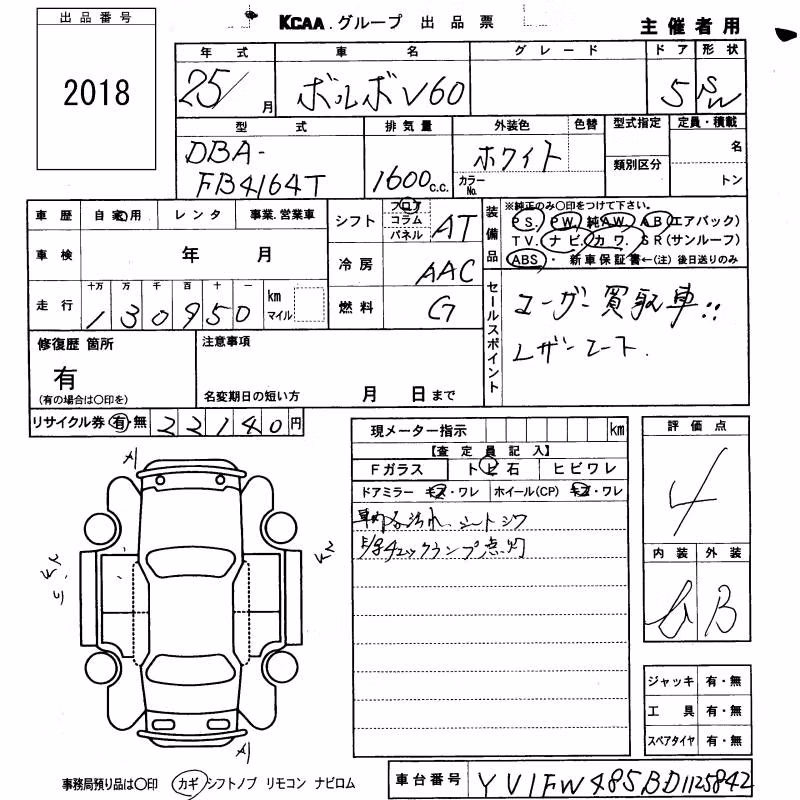 出品番号
2018
KCAA.グループ 出品票
主催者用
年式 車名 グレード ドア 形状
25/ 月 ボルボV60 5 SW
型式 排気量 外装色 色替 型式指定 定員・積載
DBA-
FB4164T 1600 c.c. ホワイト カラーNo. 類別区分 名 トン
車歴 自家用 レンタ 事業.営業車
車検 年 月
走行 十万 万 千 百 十 一 km マイル
1 3 0 9 5 0
シフト フロア コラム パネル AT
冷房 AAC
燃料 G
装備品 ※純正のみ○印をつけて下さい。
PS. PW. 純AW. AB(エアバック)
TV. ナビ. カワ. SR(サンルーフ)
ABS・ 新車保証書←(注) 後日送りのみ
セールスポイント
ユーザー買取車!!
レザーシート.
修復歴 箇所
有
(有の場合は○印を)
注意事項
名変期日の短い方 月 日まで
リサイクル券 有 無 22140円
現メーター指示 km
【査定員記入】
Fガラス トビ石 ヒビワレ
ドアミラー キズ・ワレ ホイール(CP) キズ・ワレ
シートシワ
チェックランプ点灯
評価点
4
内装 外装
B
A1
A1
ジャッキ 有・無
工具 有・無
スペアタイヤ 有・無
事務局預り品は○印 カギ シフトノブ リモコン ナビロム
車台番号 YV1FW485BD1125842